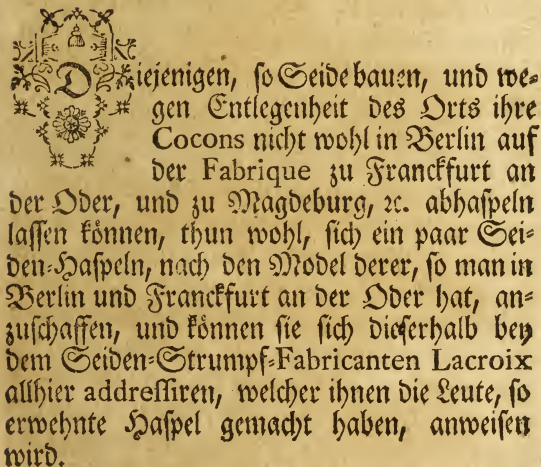 Diejenigen, so Seide bauen, und we-
gen Entlegenheit des Orts ihre
Cocons nicht wohl in Berlin auf
der Fabrique zu Franckfurt an
der Oder, und zu Magdeburg, ꝛc. abhaspeln
lassen können, thun wohl, sich ein paar Sei-
den-Haspeln, nach den Model derer, so man in
Berlin und Franckfurt an der Oder hat, an-
zuschaffen, und können sie sich dieserhalb bey
dem Seiden-Strumpf-Fabricanten Lacroix
allhier addressiren, welcher ihnen die Leute, so
erwehnte Haspel gemacht haben, anweisen
wird.